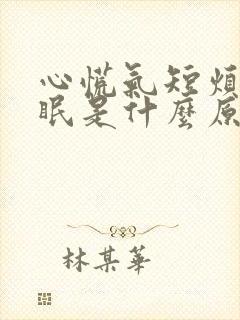 心慌氣短煩
眠是什麼原
林某華